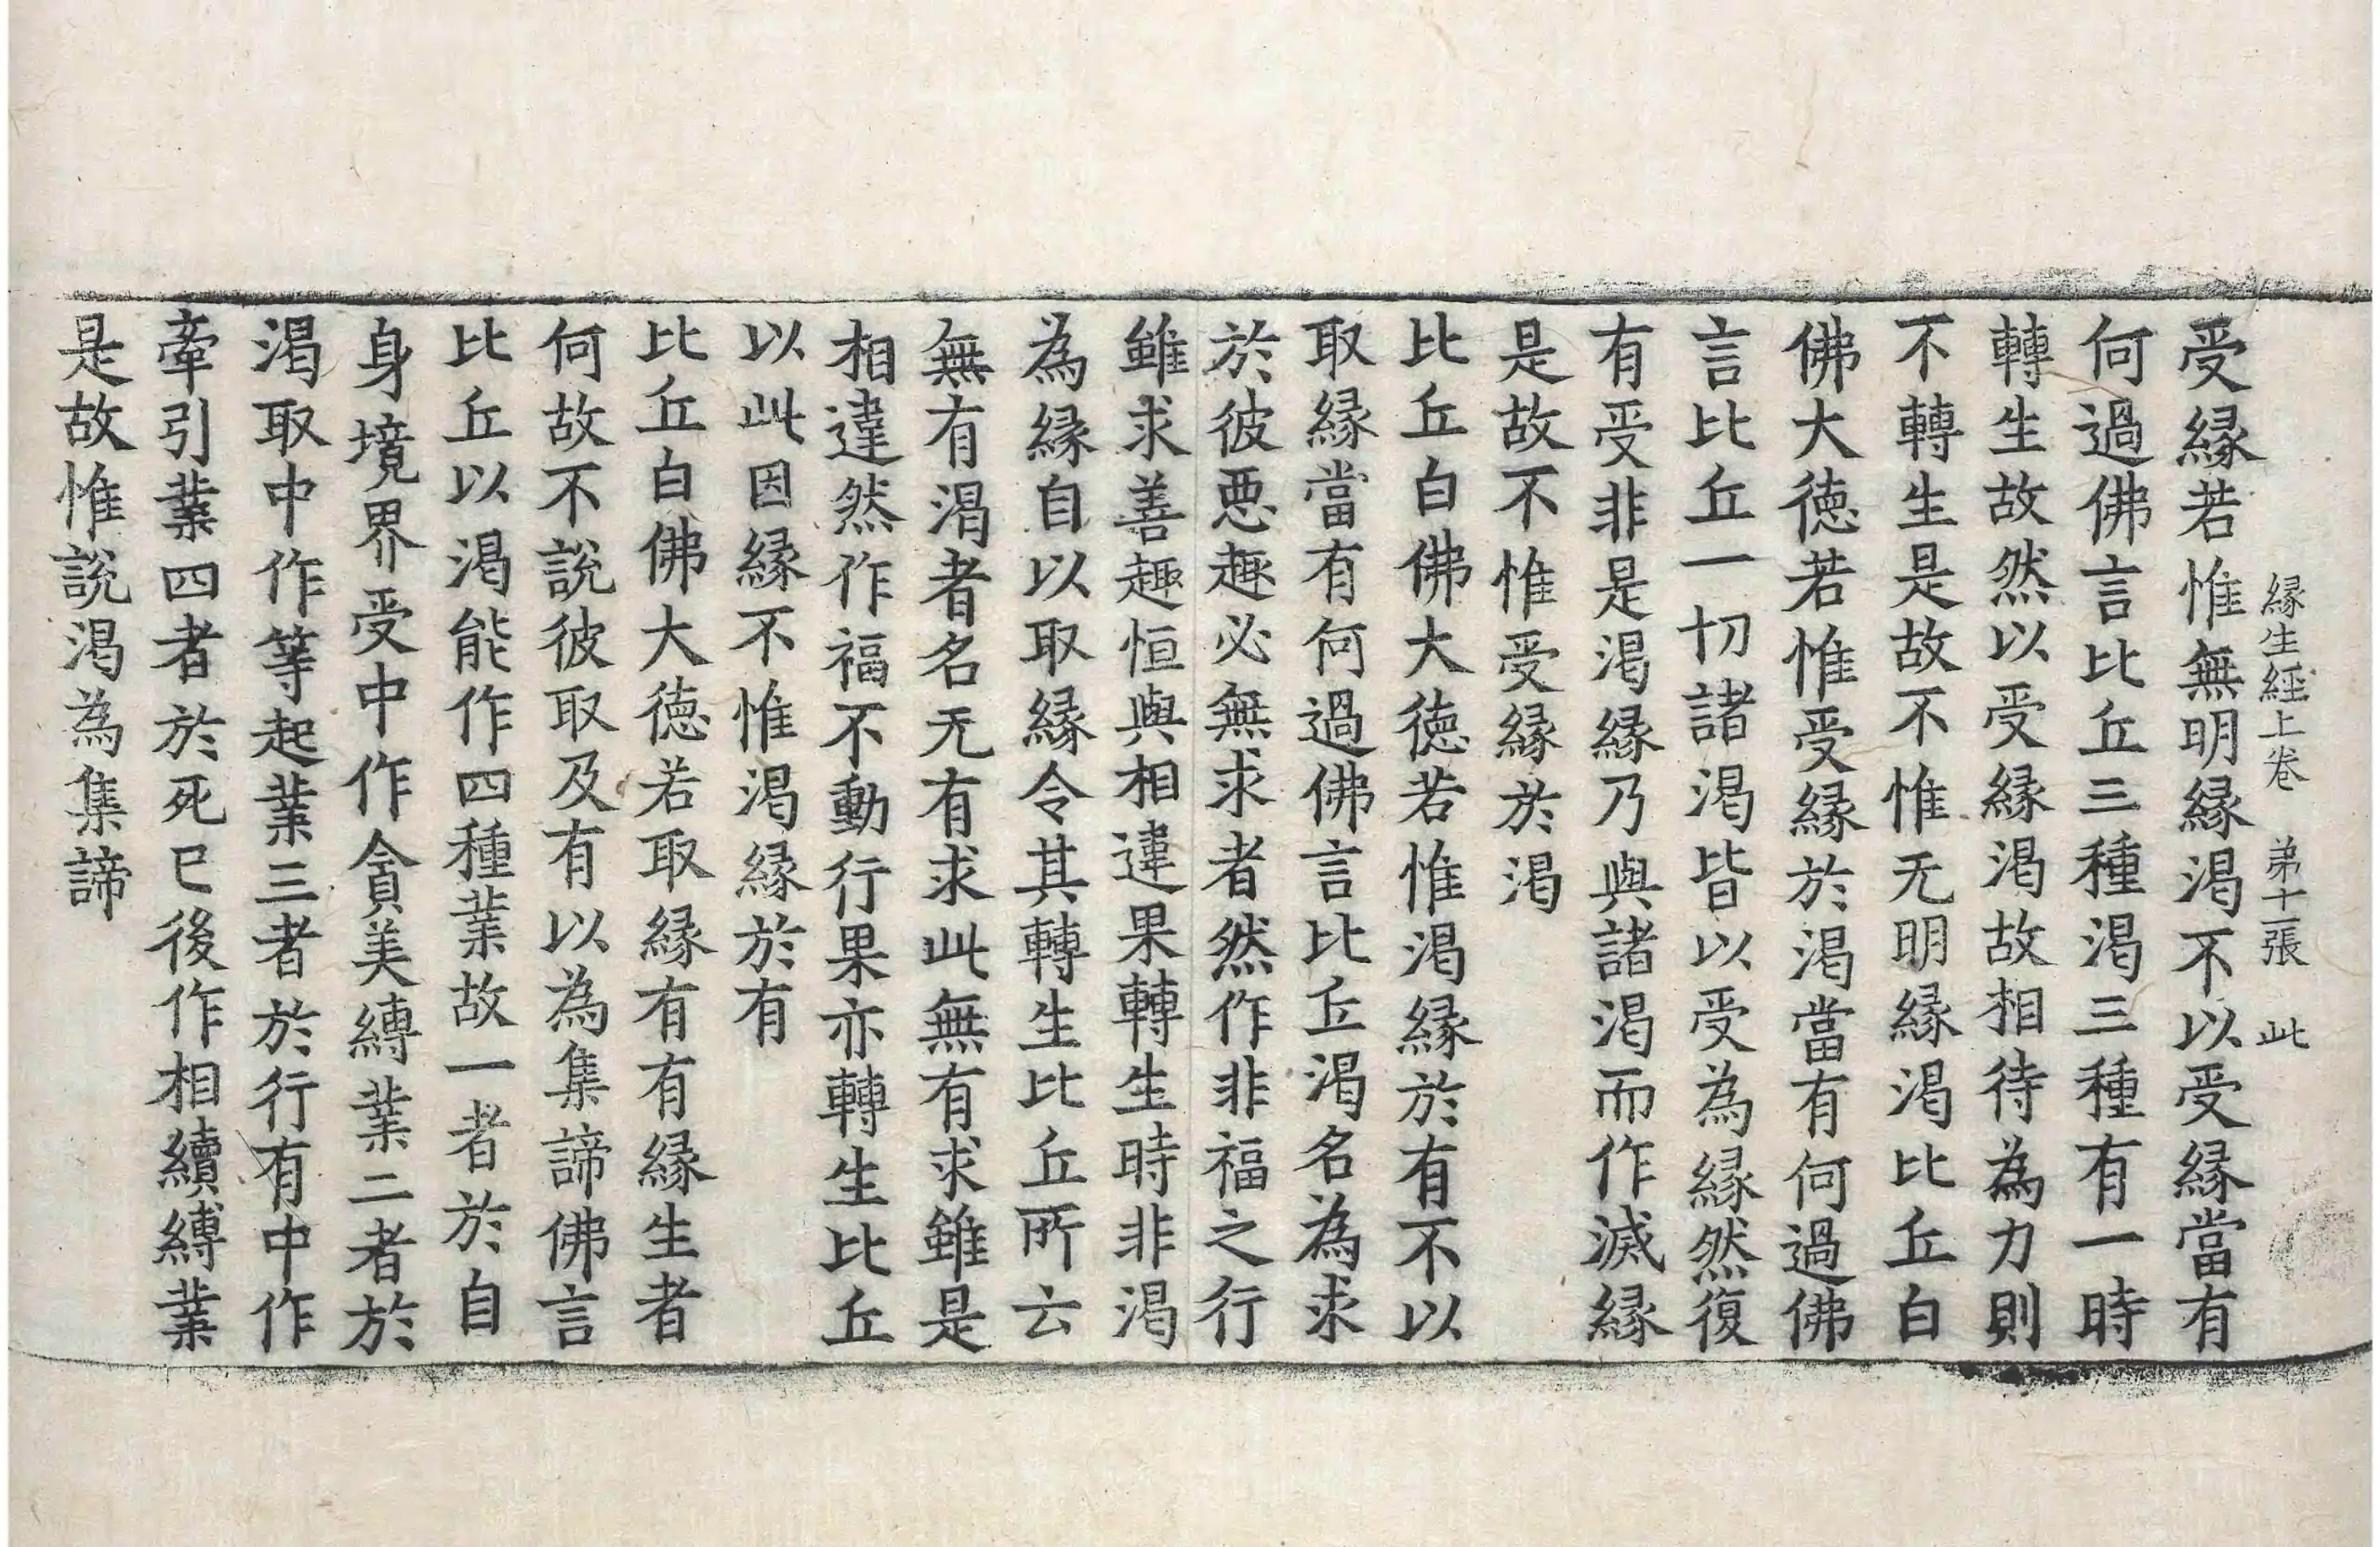 縁生經上卷 弟十一張 此
受縁若惟無明縁渇不以受縁當有
何過佛言比丘三種渇三種有一時
轉生故然以受縁渇故相待為力則
不轉生是故不惟无明縁渇比丘白
佛大徳若惟受縁於渇當有何過佛
言比丘一切諸渇皆以受為縁然復
有受非是渇縁乃與諸渇而作滅縁
是故不惟受縁於渇
比丘白佛大徳若惟渇縁於有不以
取縁當有何過佛言比丘渇名為求
於彼惡趣必無求者然作非福之行
雖求善趣恒與相違果轉生時非渇
為縁自以取縁令其轉生比丘所云
無有渇者名无有求此無有求雖是
相違然作福不動行果亦轉生比丘
以此因縁不惟渇縁於有
比丘白佛大徳若取縁有有縁生者
何故不說彼取及有以為集諦佛言
比丘以渇能作四種業故一者於自
身境界受中作貪美縛業二者於
渇取中作等起業三者於行有中作
牽引業四者於死已後作相續縛業
是故惟説渇為集諦